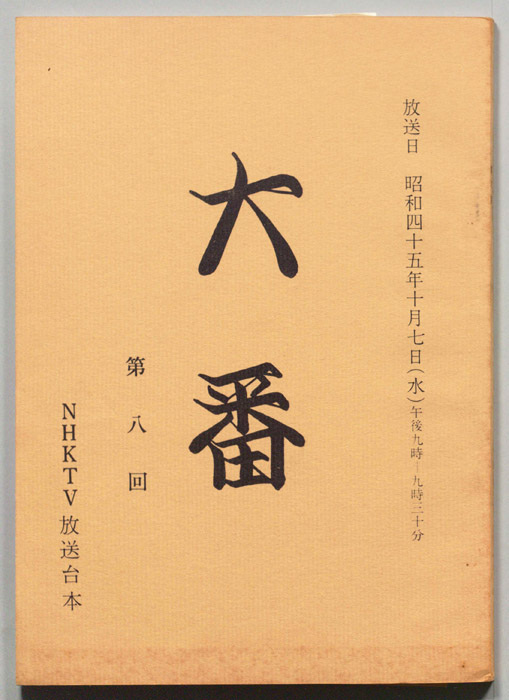 放送日 昭和四十五年十月七日(水)午後九時―九時三十分
大番
第八回
NHKTV放送台本